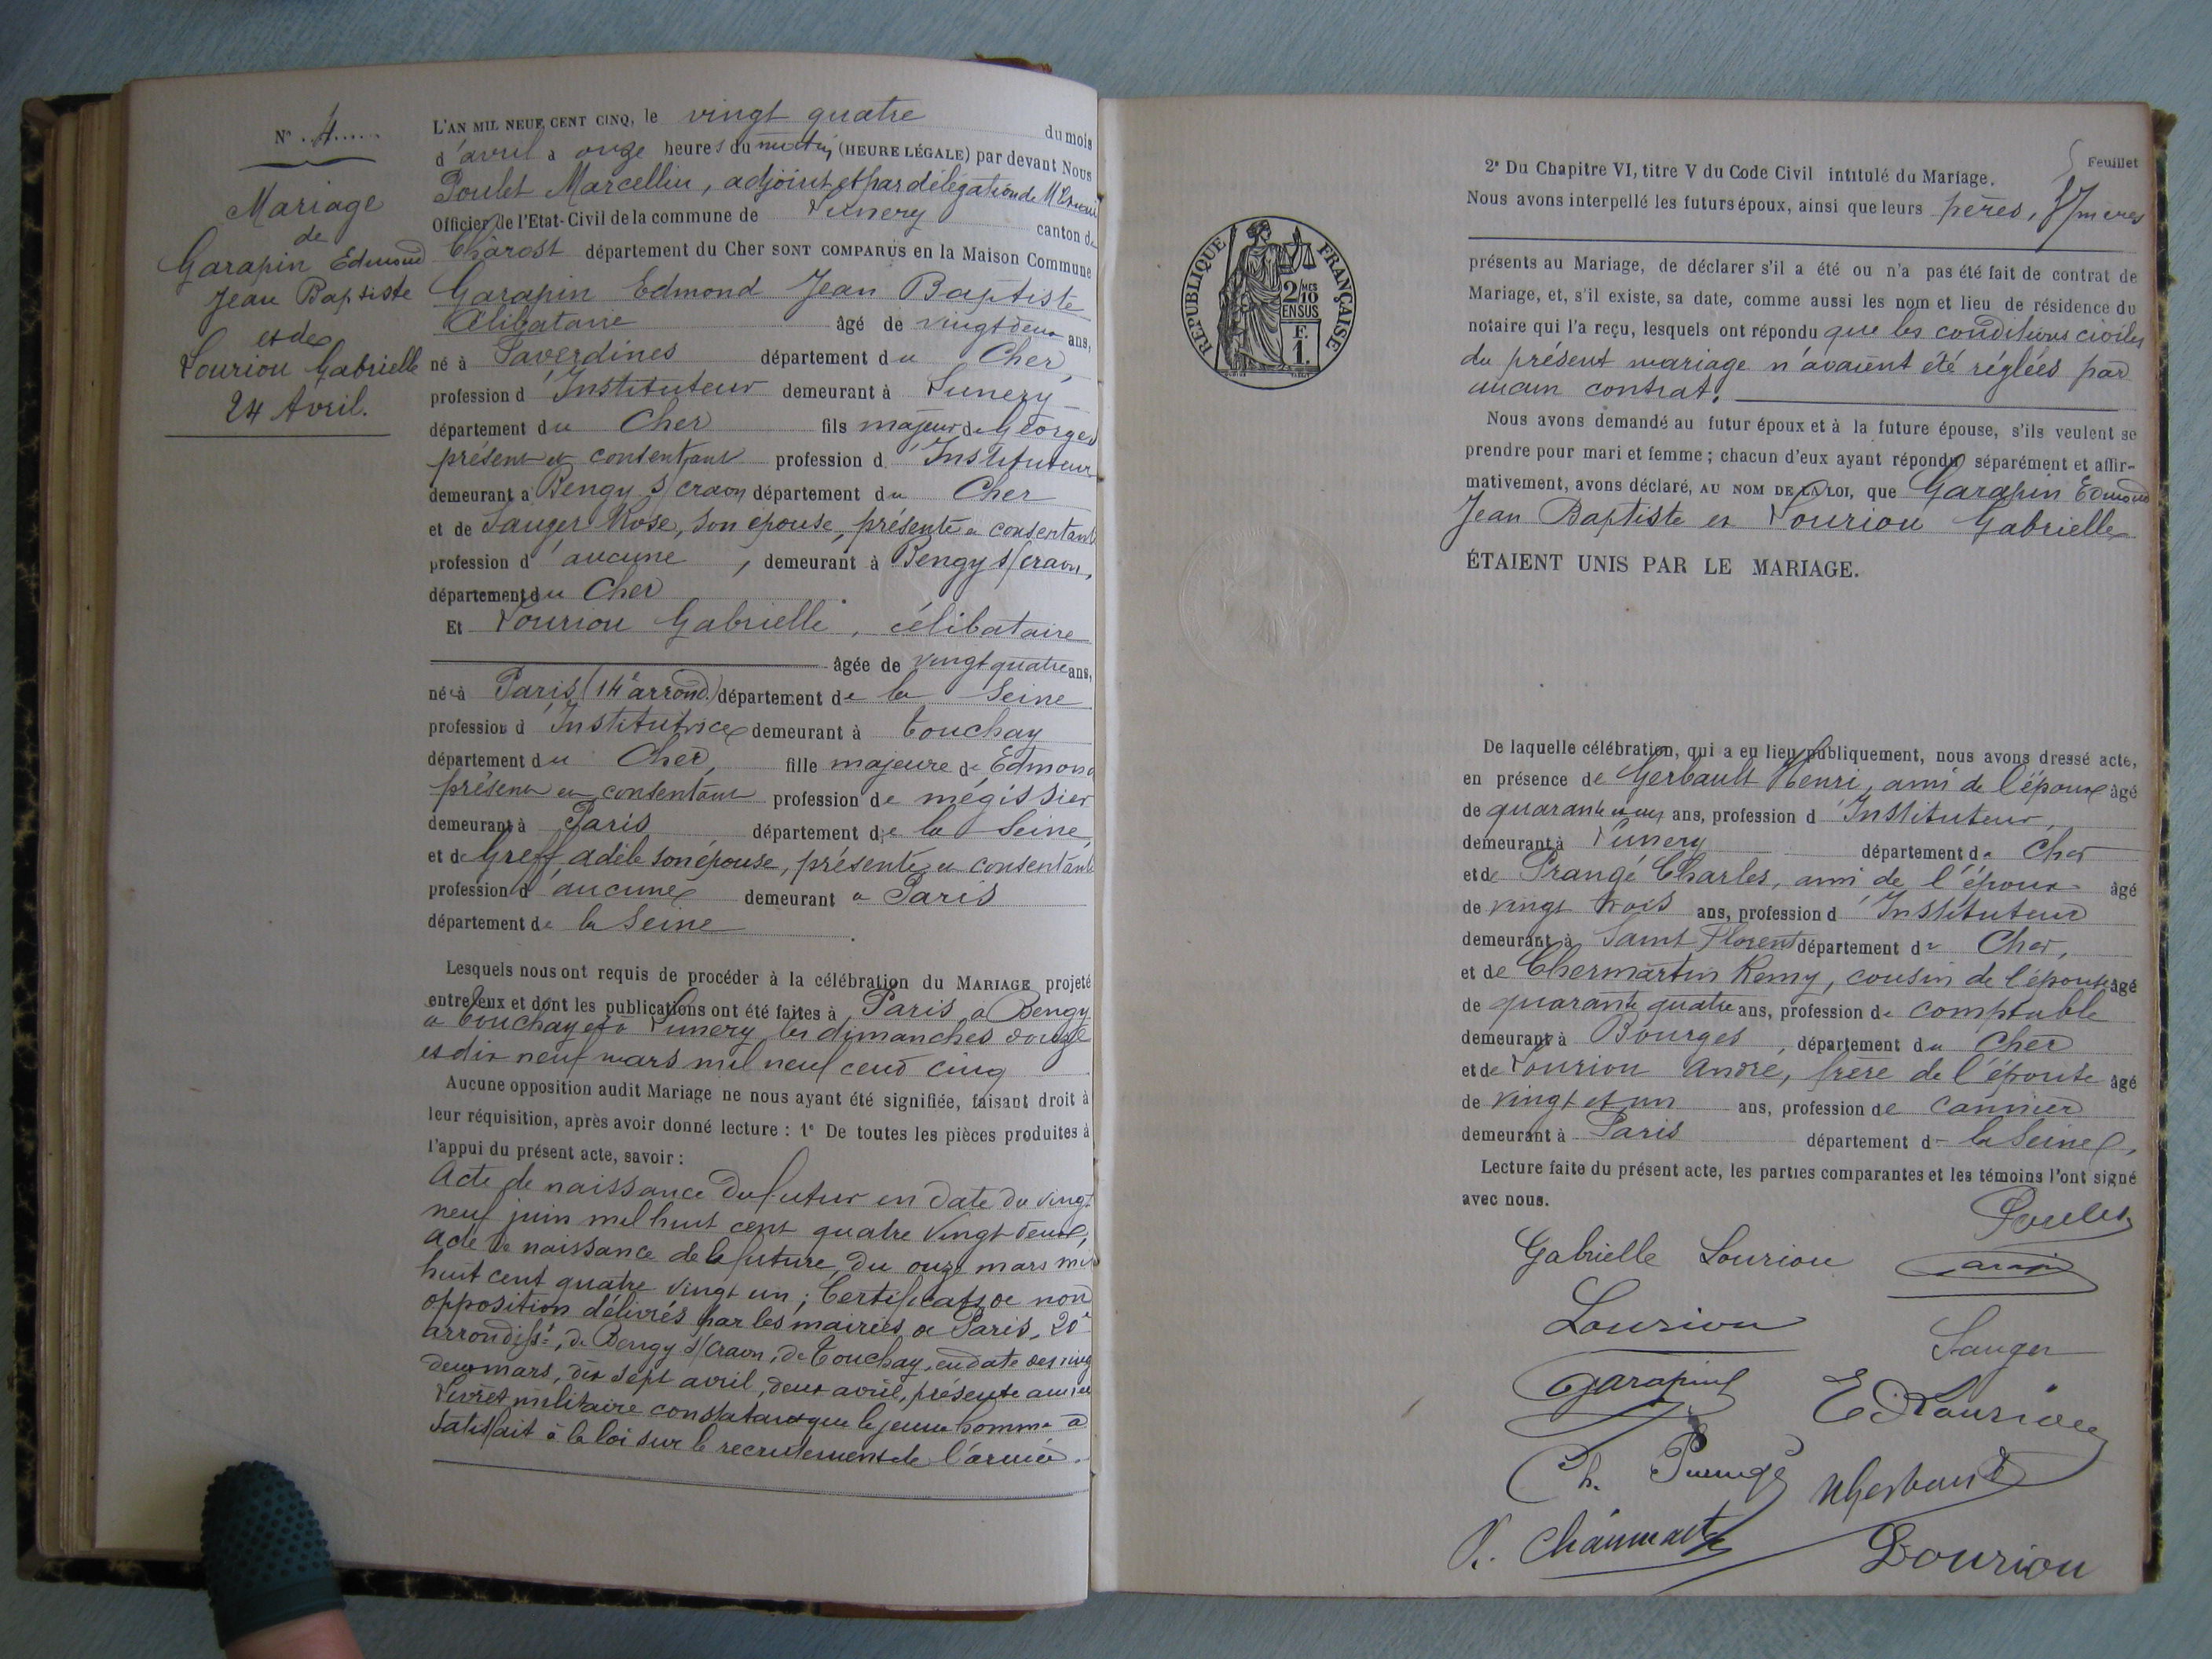 N° 4
Mariage
de
Garapin Edmond
Jean Baptiste
et de
Louriou Gabrielle
24 Avril.
L'AN MIL NEUF CENT CINQ, le vingt quatre du mois
d'avril à onze heures du matin (HEURE LÉGALE) par devant Nous
Poulet Marcellin, adjoint et par délégation de M.
Officier de l'Etat-Civil de la commune de Lunery canton de
Chârost département du Cher SONT COMPARUS en la Maison Commune
Garapin Edmond Jean Baptiste
Célibataire âgé de vingt deux ans,
né à Saverdines département du Cher,
profession d'Instituteur demeurant à Lunery
département du Cher fils majeur de Georges
présent et consentant profession d'Instituteur
demeurant à Bengy s/craon département du Cher
et de Sauger Rose, son épouse, présente et consentante
profession d'aucune, demeurant à Bengy s/craon,
département du Cher
Et Louriou Gabrielle, célibataire
âgée de vingt quatre ans,
née à Paris (14e arrond.) département de la Seine
profession d'Institutrice demeurant à Touchay
département du Cher, fille majeure de Edmond
présent et consentant profession de mégissier
demeurant à Paris département de la Seine,
et de Greff adèle son épouse, présente et consentante
profession d'aucune demeurant à Paris
département de la Seine
Lesquels nous ont requis de procéder à la célébration du MARIAGE projeté
entre eux et dont les publications ont été faites à Paris à Bengy
à Touchay et à Lunery les dimanches douze
et dix neuf mars mil neuf cent cinq
Aucune opposition audit Mariage ne nous ayant été signifiée, faisant droit à
leur réquisition, après avoir donné lecture : 1° De toutes les pièces produites à
l'appui du présent acte, savoir :
Acte de naissance du futur en date du vingt
neuf juin mil huit cent quatre vingt deux,
acte de naissance de la future du onze mars mil
huit cent quatre vingt un ; Certificats de non
opposition délivrés par les mairies de Paris, 20e
arrondisst, de Bengy s/craon, de Touchay, en date des vingt
deux mars, dix sept avril, deux avril, présente année
Livret militaire constatant que le jeune homme a
satisfait à la loi sur le recrutement de l'armée.
RÉPUBLIQUE FRANÇAISE
2/10 MES
EN SUS
F.
1.
5 Feuillet
2° Du Chapitre VI, titre V du Code Civil intitulé du Mariage.
Nous avons interpellé les futurs époux, ainsi que leurs pères, & mères
présents au Mariage, de déclarer s'il a été ou n'a pas été fait de contrat de
Mariage, et, s'il existe, sa date, comme aussi les nom et lieu de résidence du
notaire qui l'a reçu, lesquels ont répondu que les conditions civiles
du présent mariage n'avaient été réglées par
aucun contrat.
Nous avons demandé au futur époux et à la future épouse, s'ils veulent se
prendre pour mari et femme ; chacun d'eux ayant répondu séparément et affir-
mativement, avons déclaré, AU NOM DE LA LOI, que Garapin Edmond
Jean Baptiste et Louriou Gabrielle
ÉTAIENT UNIS PAR LE MARIAGE.
De laquelle célébration, qui a eu lieu publiquement, nous avons dressé acte,
en présence de Gerbault Henri, ami de l'époux âgé
de quarante ans, profession d'Instituteur,
demeurant à Lunery département du Cher
et de Prangé Charles, ami de l'époux âgé
de vingt trois ans, profession d'Instituteur
demeurant à Saint Florent département du Cher,
et de Chermartin Remy, cousin de l'épouse âgé
de quarante quatre ans, profession de comptable
demeurant à Bourges, département du Cher
et de Louriou André, frère de l'épouse âgé
de vingt et un ans, profession de cannier
demeurant à Paris département de la Seine,
Lecture faite du présent acte, les parties comparantes et les témoins l'ont signé
avec nous.
Poulet
Gabrielle Louriou Garapin
Louriou
Sauger
Garapin
E Louriou
Ch. Prangé HGerbault
Louriou